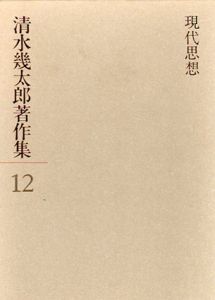 現代思想
清水幾太郎著作集
12